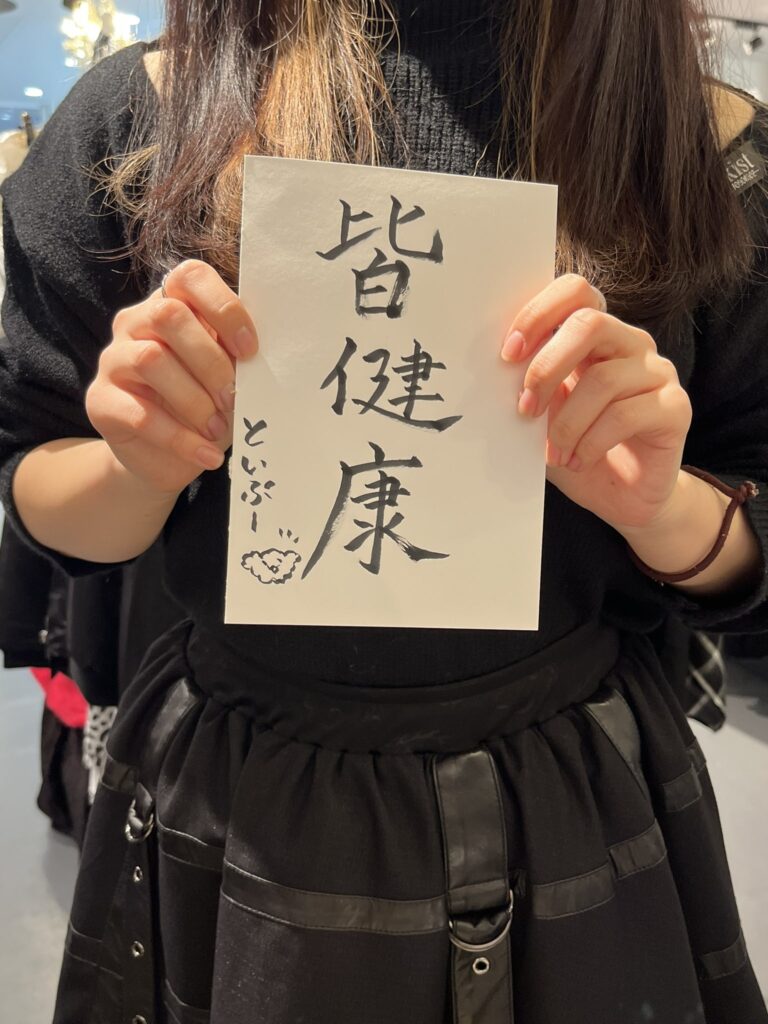 皆健康
といぷー